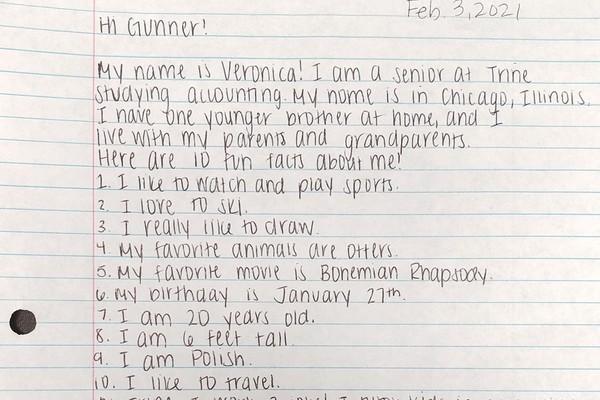 Feb. 3, 2021
Hi Gunner!
My name is Veronica! I am a senior at Trine
studying accounting. My home is in Chicago, Illinois.
I have one younger brother at home, and I
live with my parents and grandparents.
Here are 10 fun facts about me!
1. I like to watch and play sports.
2. I love to ski.
3. I really like to draw.
4. My favorite animals are otters.
5. My favorite movie is Bohemian Rhapsody.
6. My birthday is January 27th.
7. I am 20 years old.
8. I am 6 feet tall.
9. I am Polish.
10. I like to travel.